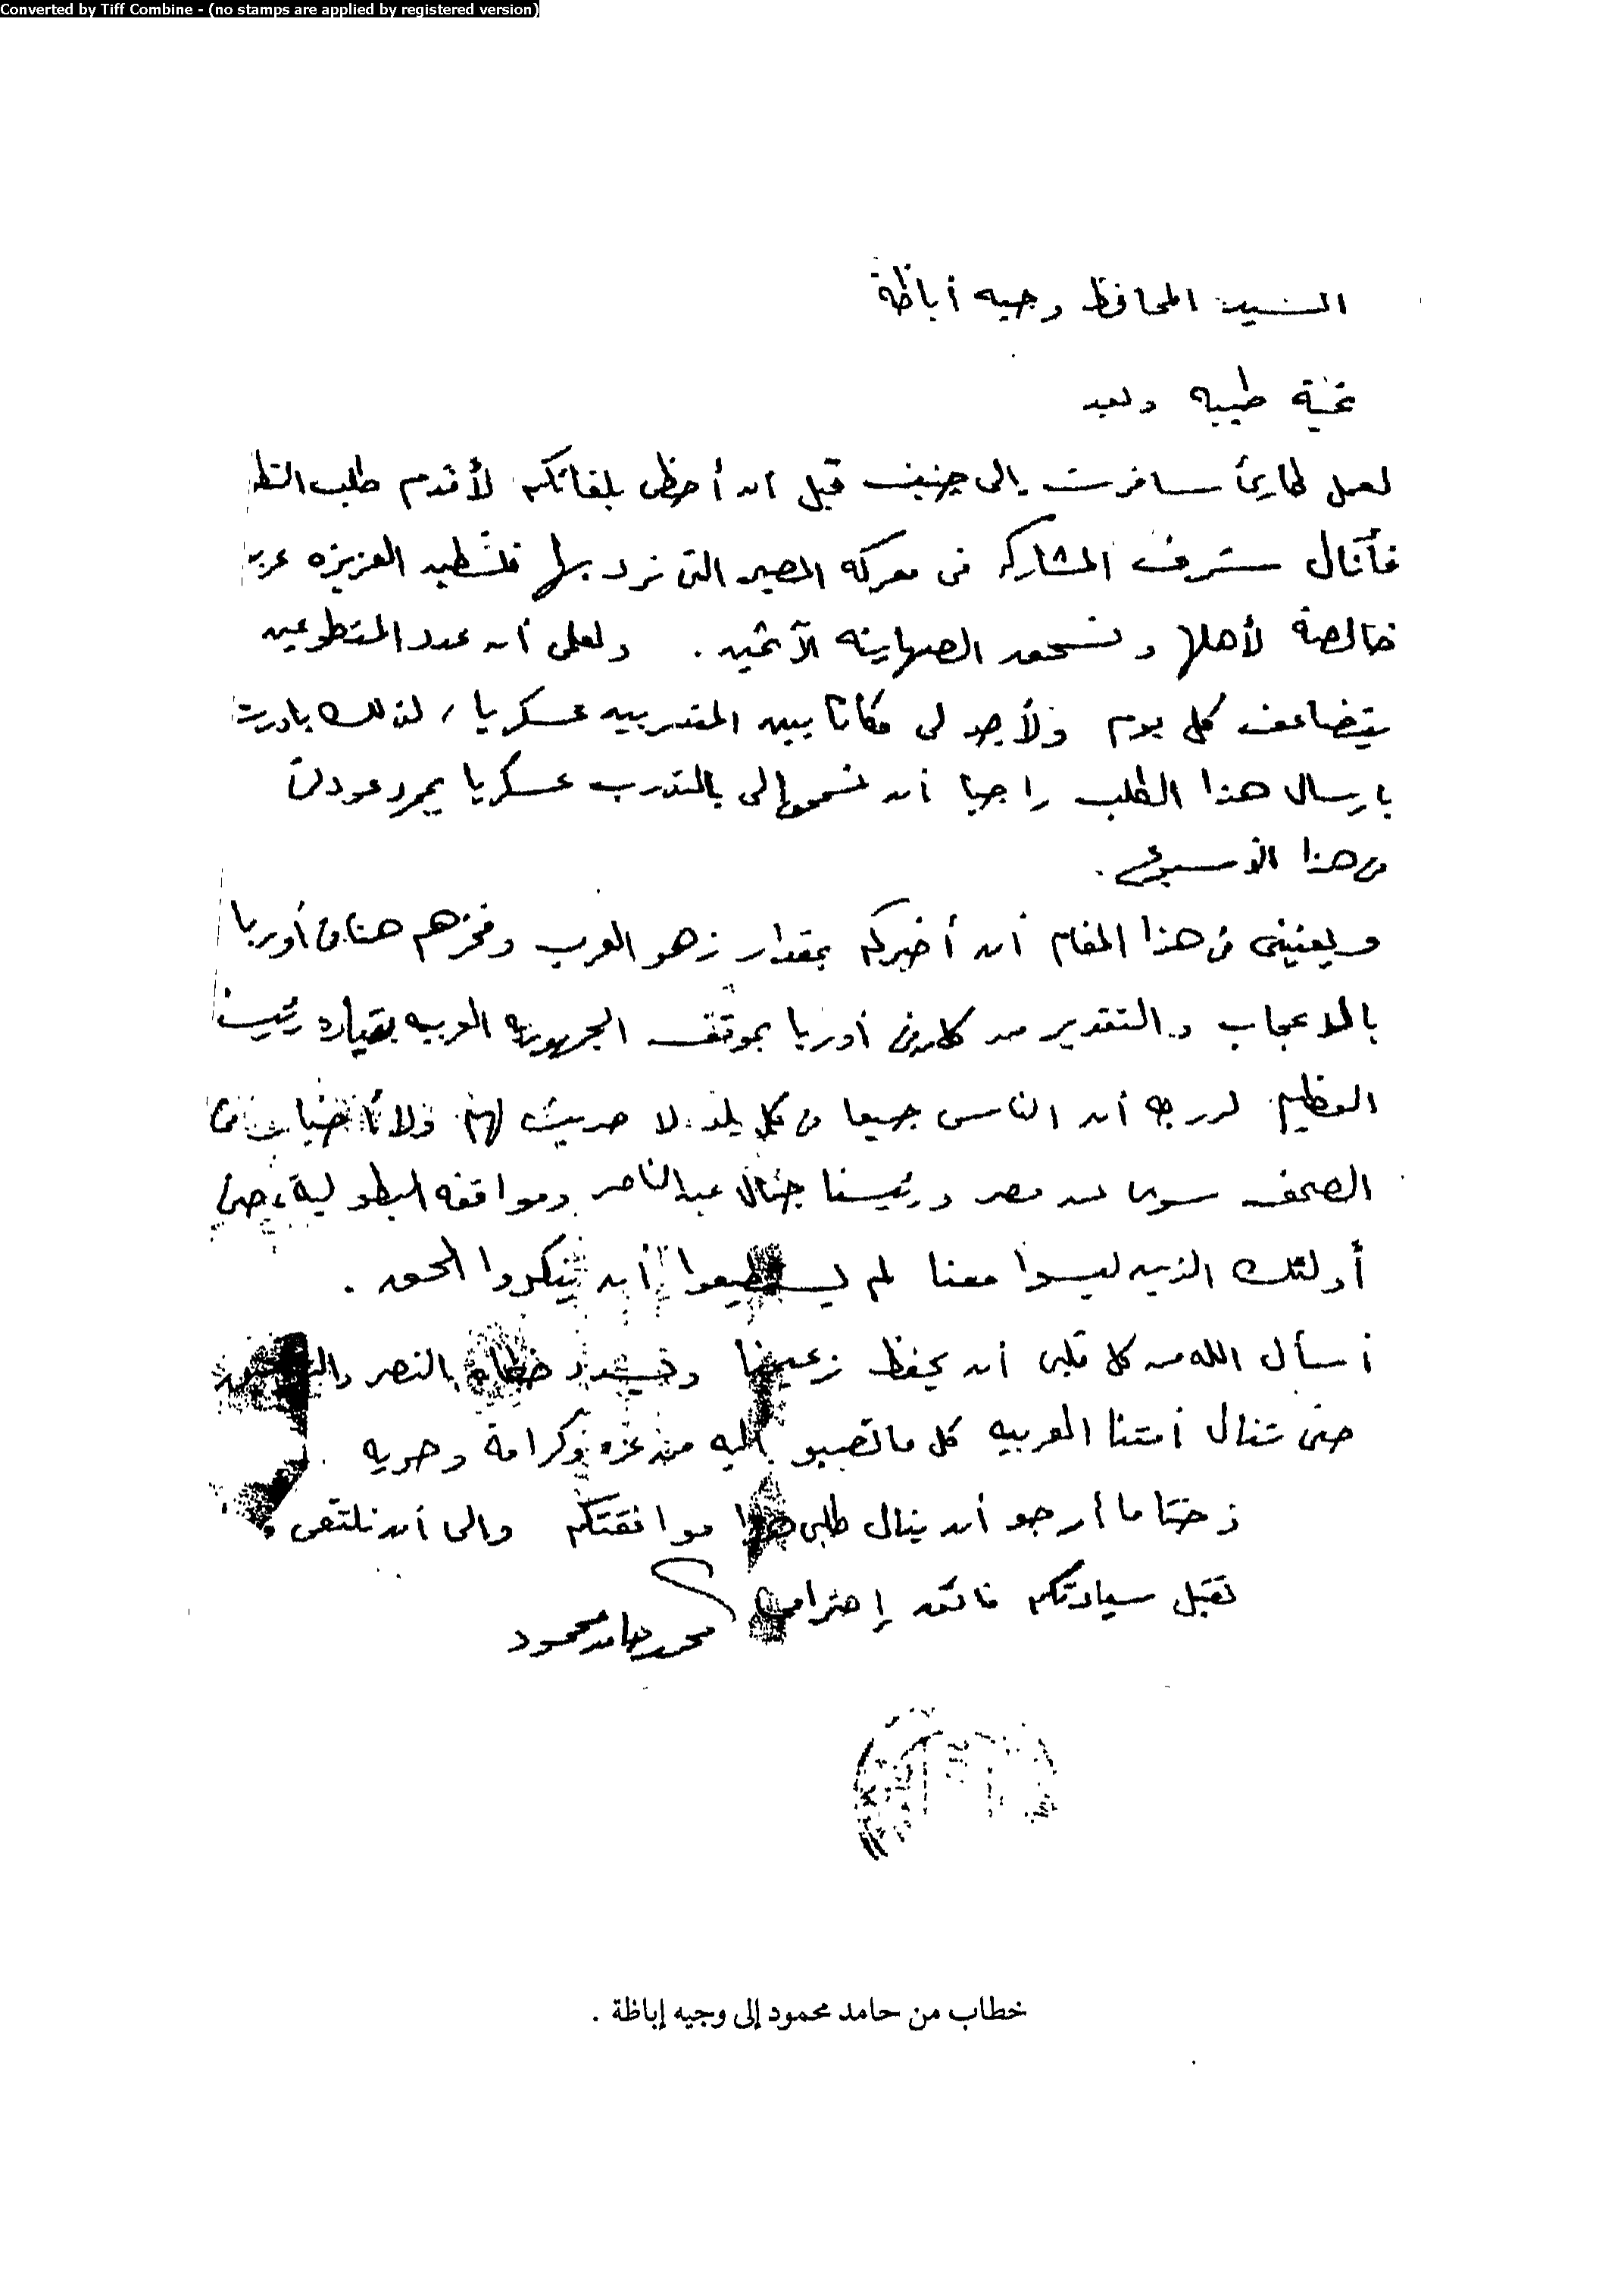 Converted by Tiff Combine - (no stamps are applied by registered version)
السيد المحافظ وجيه أباظة
تحية طيبه وبعد
لعمل طارئ سافرت إلى جنيف قبل أن أحظى بلقائكم لأقدم طلب
فأنال شرف المشاركه فى معركه المصير التى نرد بها فلسطين العزيزه
خالصة لأهلها ونسحق الصهاينه الآثمين . ولعلمى أن عدد المتطوعين
يتضاعف كل يوم ولأجد لى مكانا بين المتدربين عسكريا ، لذلك بادرت
بارسال هذا الطلب راجيا أن تسمحوا لى بالتدرب عسكريا بمجرد عودتى
فى هذا الأسبوع .
ويعنينى فى هذا المقام أن أخبركم بمقدار زهو العرب وفخرهم هنا فى أوربا
بالاعجاب والتقدير من كل أوربا بموقف الجمهوريه العربيه بقياده رئيسنا
العظيم لدرجه أن الناس جميعا فى كل بلد لا حديث لهم ولا فى
الصحف سوى عن مصر ورئيسنا جمال عبد الناصر ومواقفه البطولية ، حتى
أولئك الذين ليسوا معنا لم يستطيعوا أن ينكروا الحق .
أسأل الله من كل قلبى أن يحفظ زعيمنا ويسدد خطاه بالنصر
حتى تنال أمتنا العربيه كل ما تصبو اليه من عزه وكرامة وحريه .
وختاما أرجو أن ينال طلبى هذا موافقتكم والى أن نلتقى .
تقبل سيادتكم فائق إحترامى
محمد حامد محمود
خطاب من حامد محمود إلى وجيه إباظة .